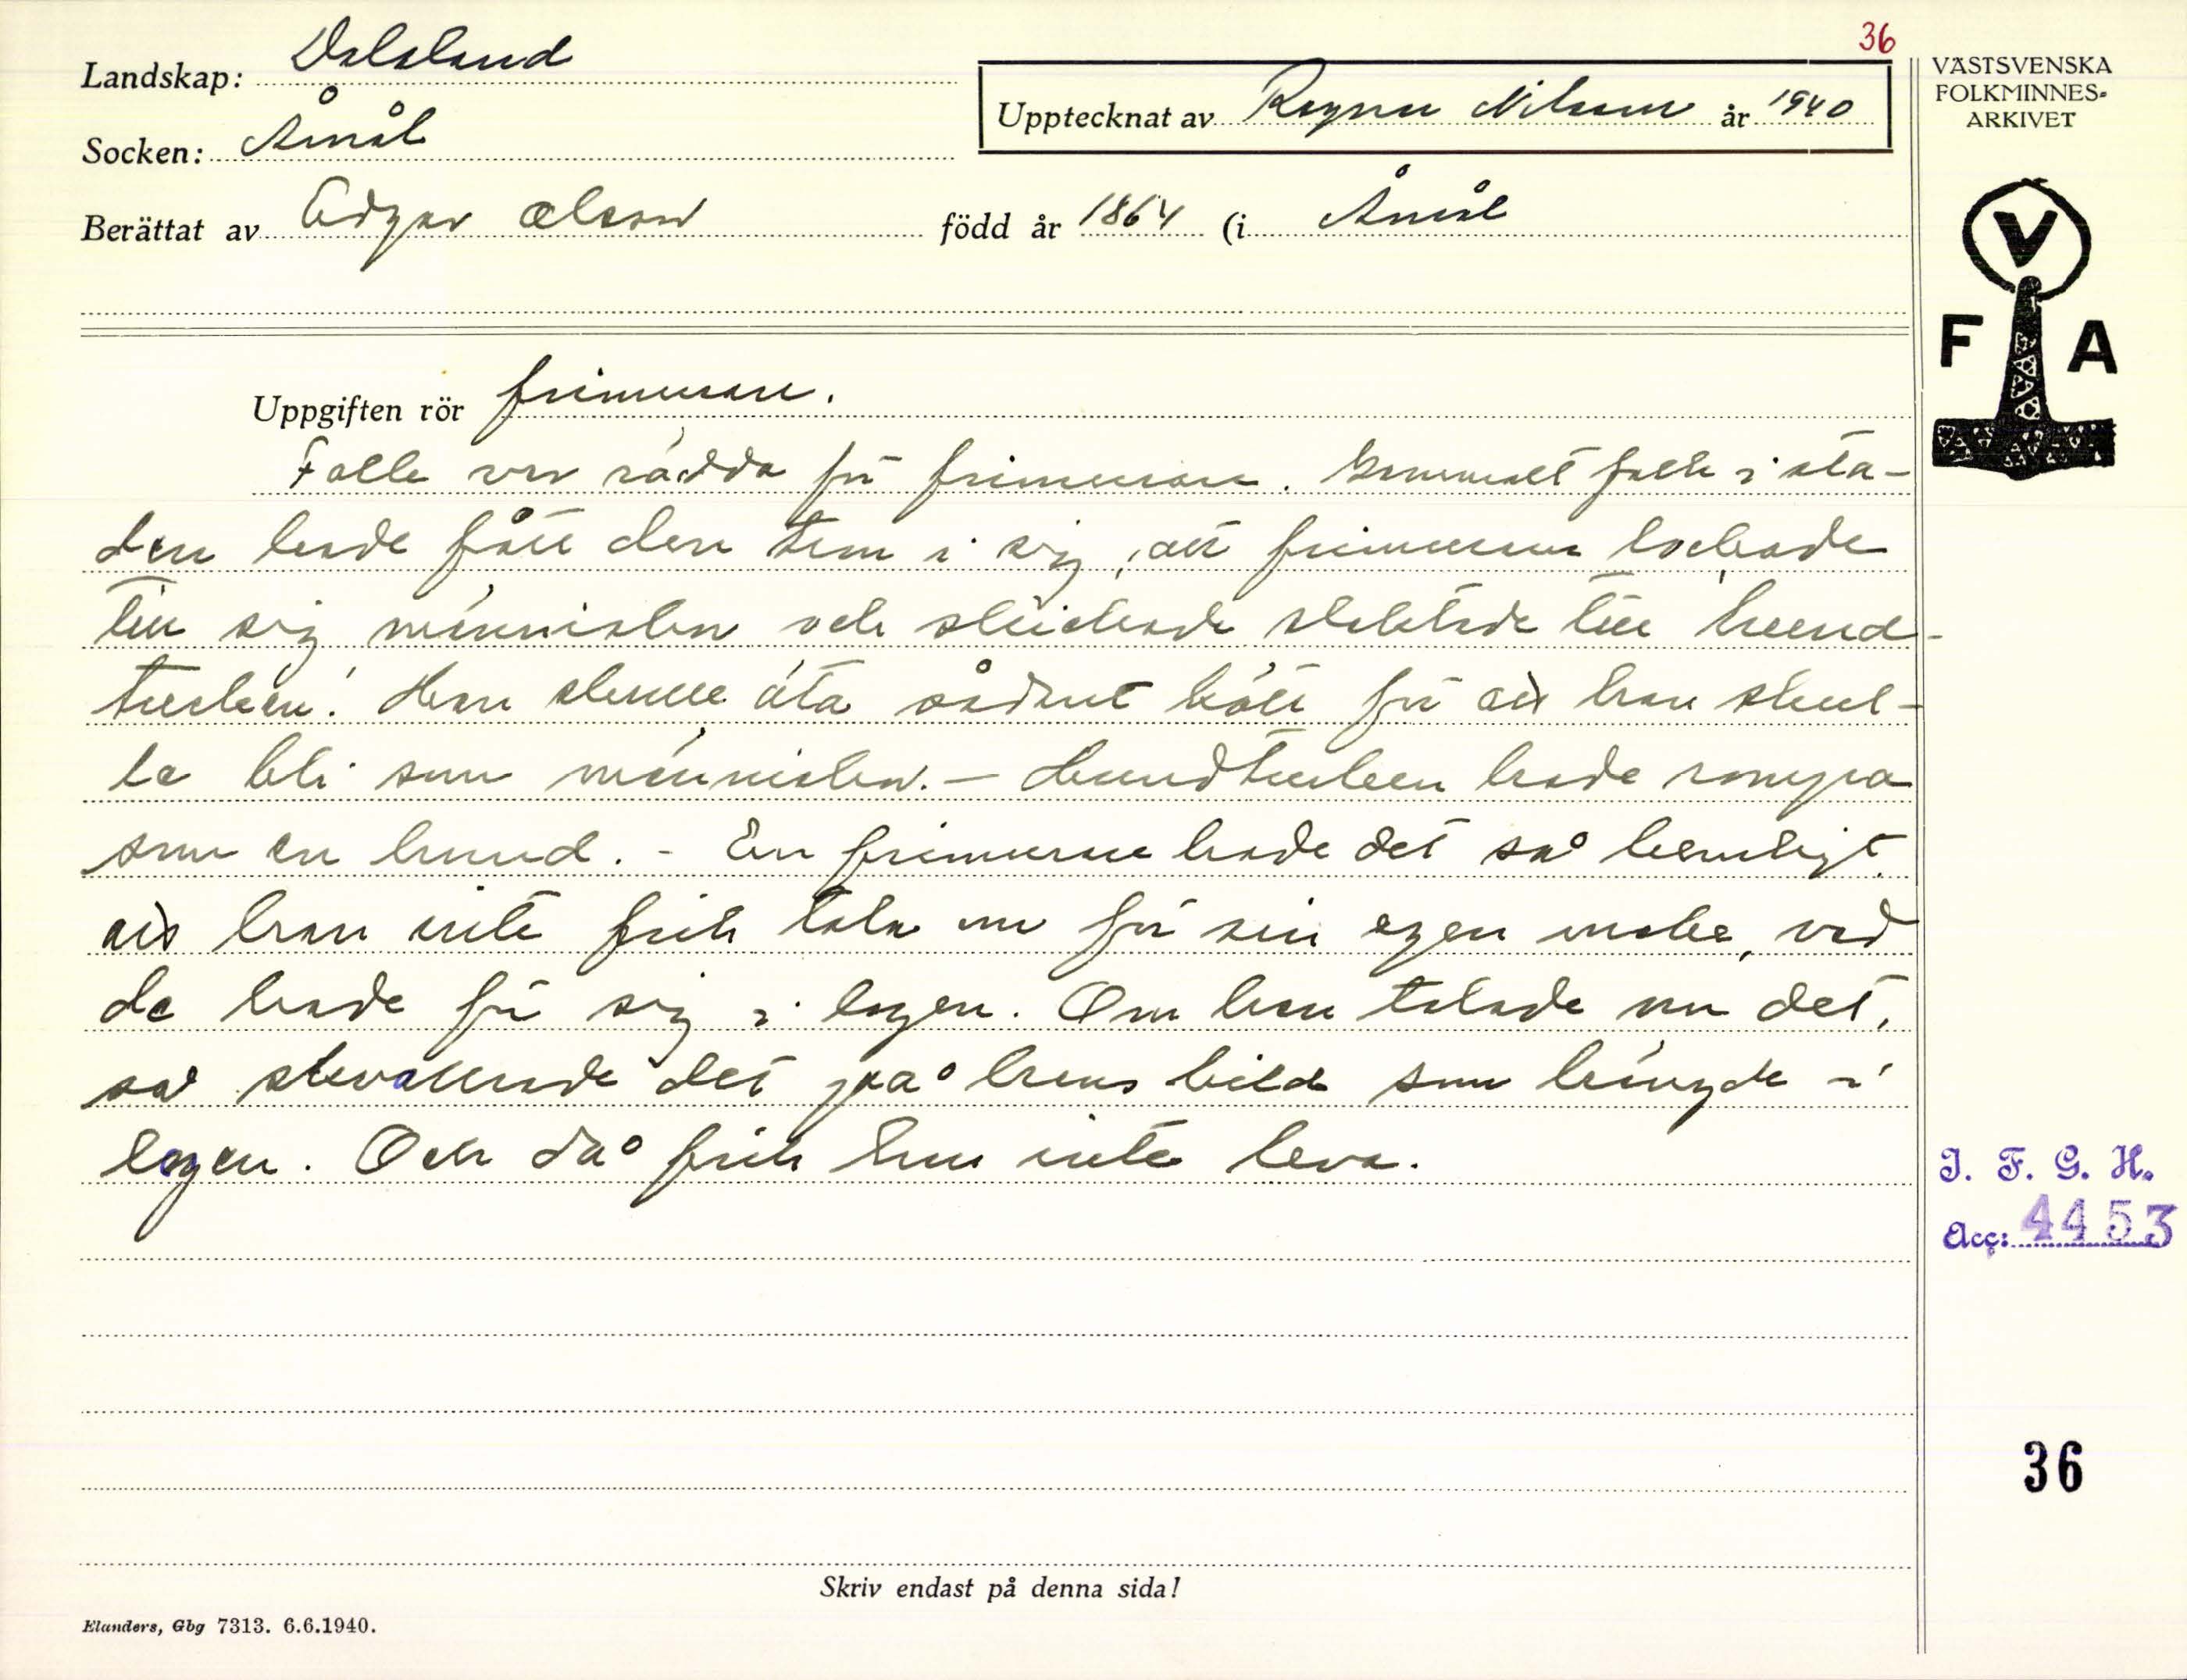 36
Landskap: Dalsland
Socken: Åmål
Upptecknat av Ragnar Nilsson år 1940
Berättat av Edgar Olsson född år 1864 (i Åmål
VÄSTSVENSKA
FOLKMINNES-
ARKIVET
V
F A
Uppgiften rör frimurare.
Folk var rädda för frimurare. Gammalt folk i sta-
den hade fått den tron i sig, att frimurare lockade
till sig människor och skickade slaktade till hund-
turken. Han skulle äta sådant kött för att han skul-
le bli som människor. — Hundturken hade rumpa
som en hund. - En frimurare hade det så hemligt
att han inte fick tala om för sin egen maka, vad
de hade för sig i logen. Om han talade om det,
så skvallrade det på hans bild som hängde i
logen. Och då fick han inte leva.
I. F. G. H.
Acc: 4453
36
Skriv endast på denna sida!
Elanders, Gbg 7313. 6.6.1940.